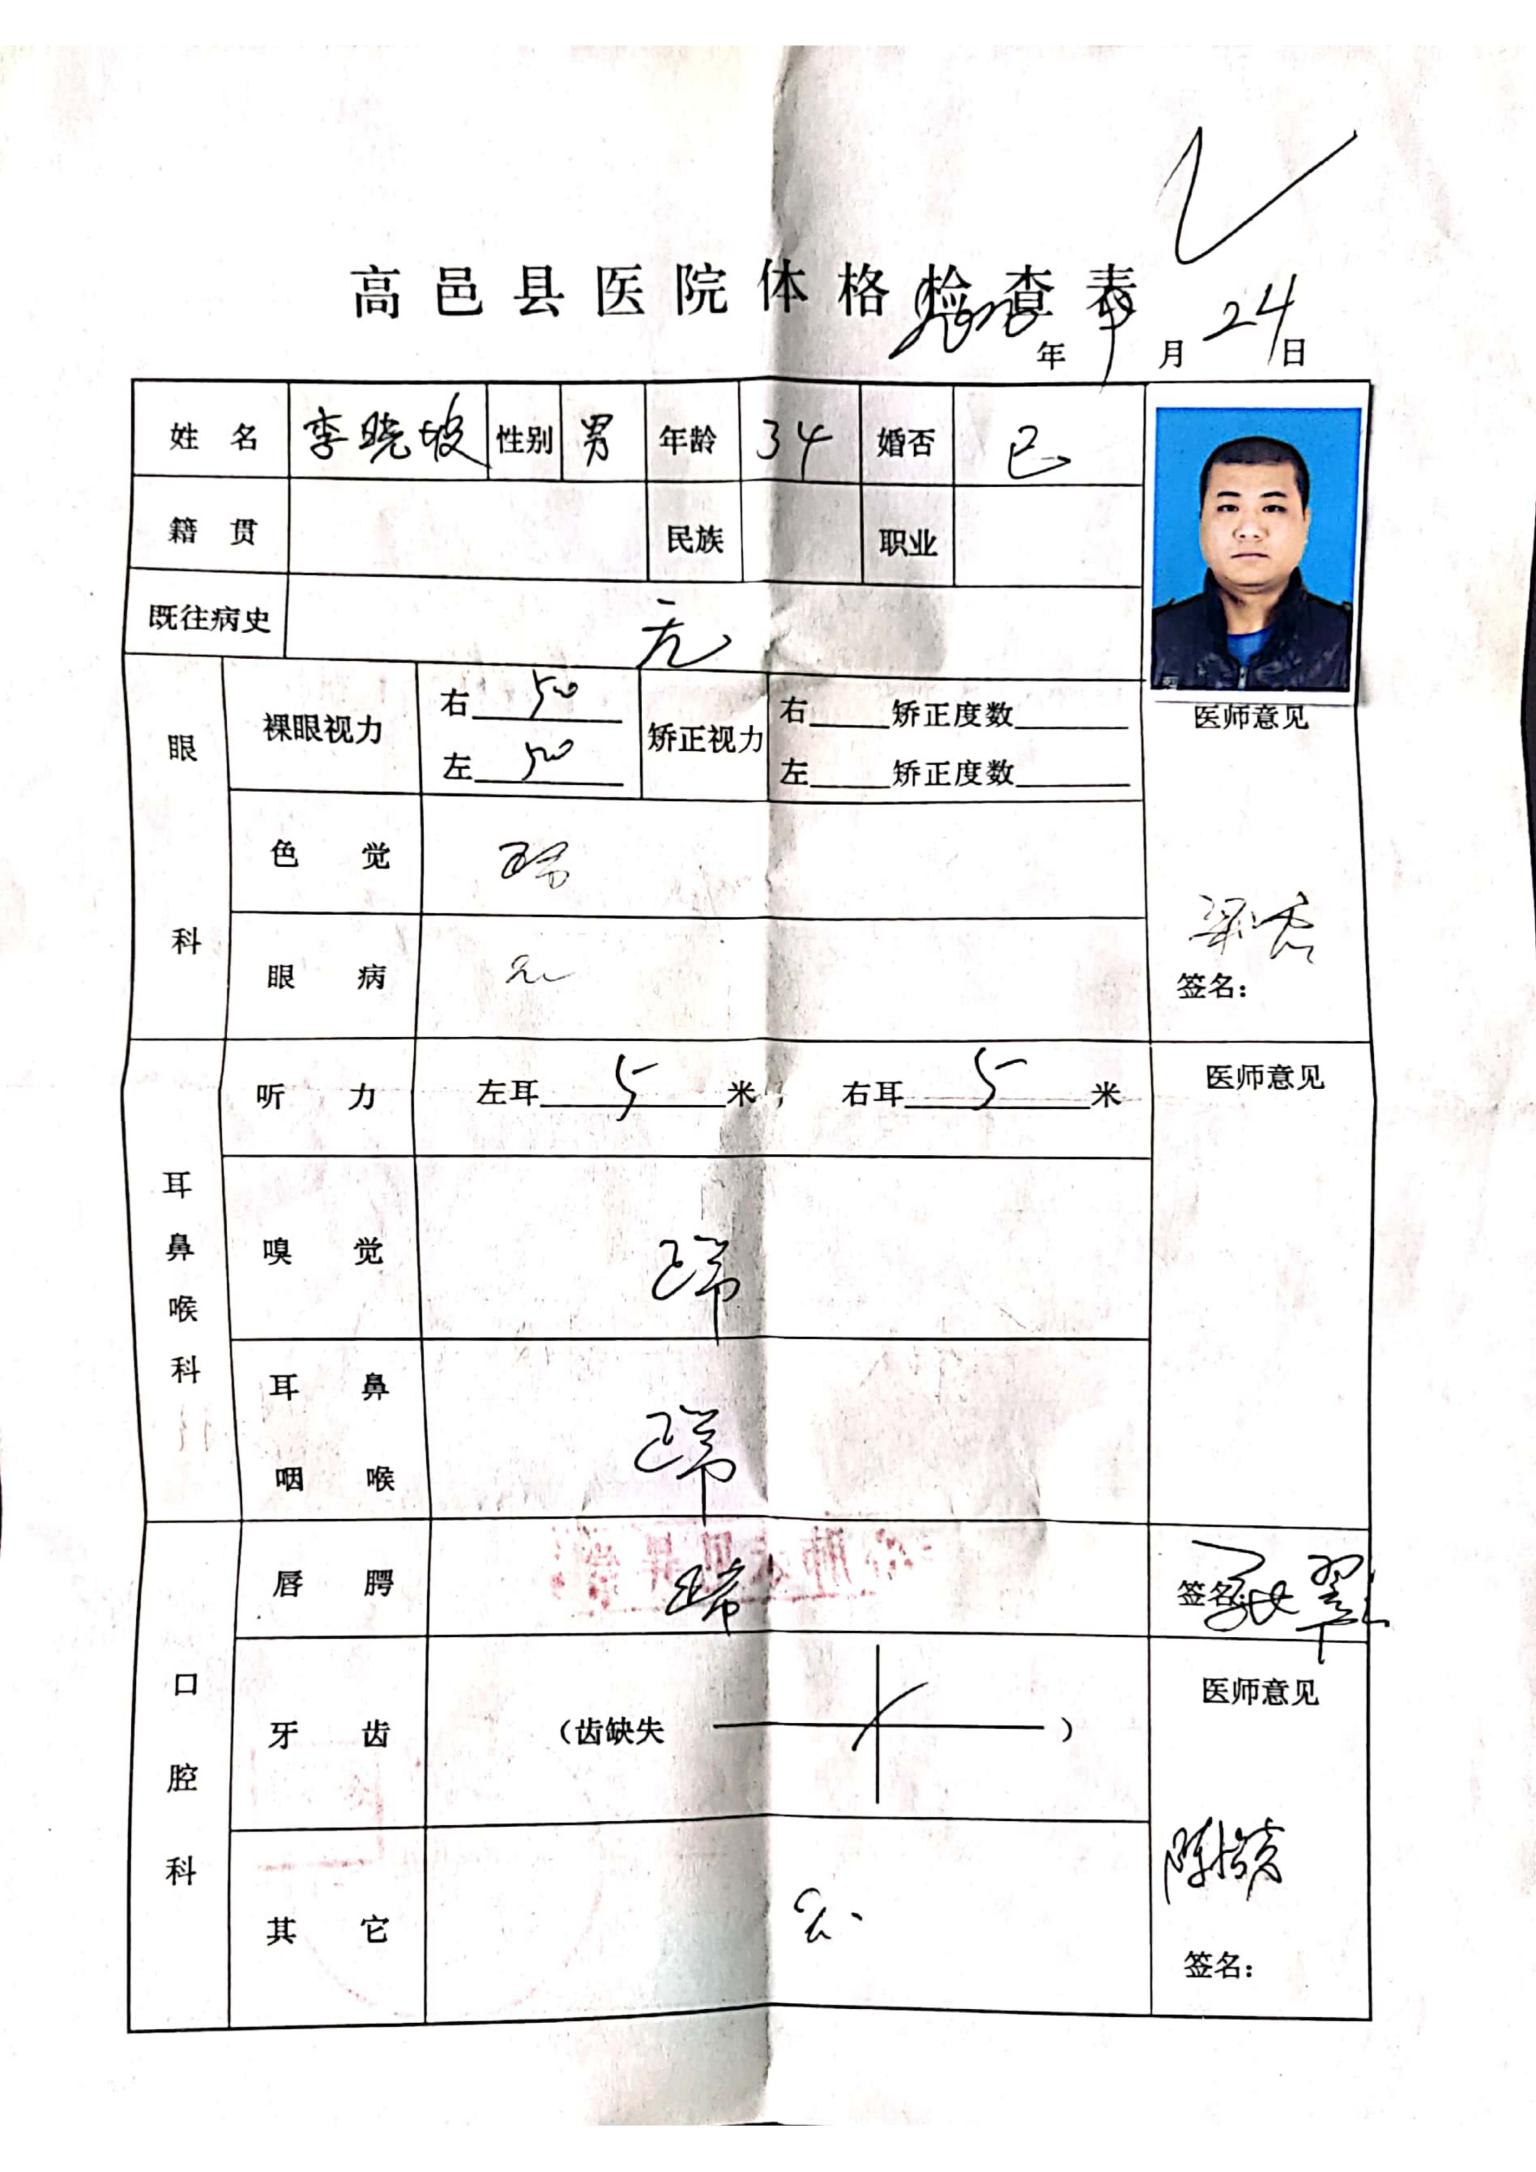 高邑县医院体格检查表
年 月 24 日
姓名 李晓坡 性别 男 年龄 34 婚否 已
籍贯 民族 职业
既往病史 无
眼科
裸眼视力 右 5.0 左 5.0 矫正视力 右 矫正度数 左 矫正度数
医师意见
色觉 正常
眼病 无
签名：
耳鼻喉科
听力 左耳 5 米， 右耳 5 米
医师意见
嗅觉 正常
耳鼻咽喉 正常
口腔科
唇腭 正常
签名：
牙齿 （齿缺失 ）
医师意见
其它 无
签名：